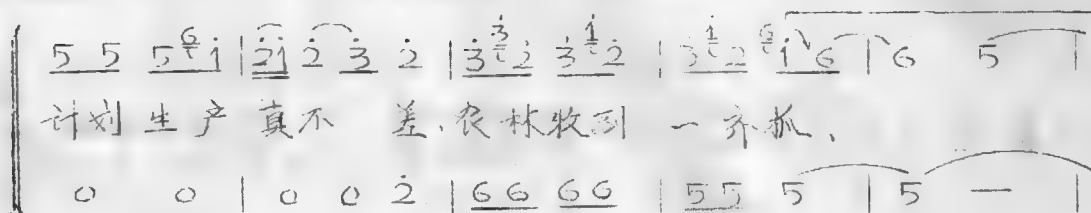 5 5 5 6 i | 2̇ i 2̇ 3̇ 2̇ | 3̇ 3̇ 2̇ 3̇ i 2̇ | 3̇ i 2̇ 6 i 6 | 6 5 |
计划生产真不差、农林收到一齐抓、
0 0 | 0 0 2̇ | 6 6 6 6 | 5 5 5 | 5 — |